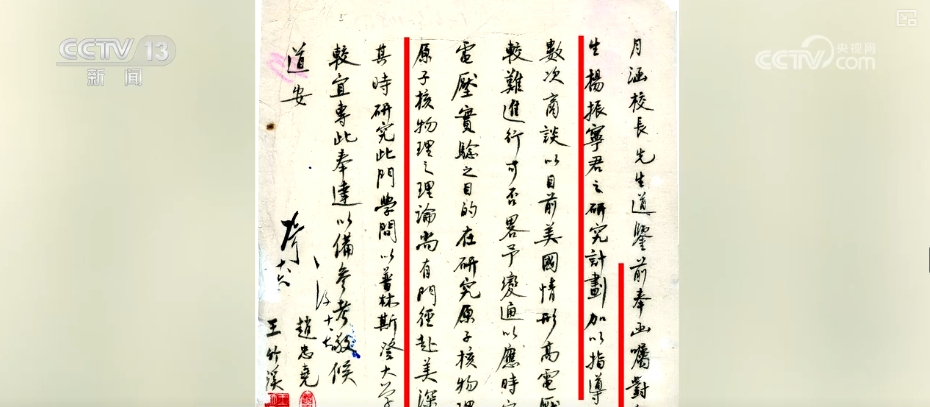 CCTV 13
新闻
央视网
CCTV.com
月涵校長先生道鑒前奉函囑對
生楊振寧君之研究計劃加以指導
數次商談以目前美國情形高電壓
較難進行可否畧予變通以應時
電壓實驗之目的在研究原子核物理
原子核物理之理論尚有門徑赴美深
其時研究此門學問以普林斯登大學
較宜專此奉達以備參考敬候
道安
趙忠堯
王竹溪